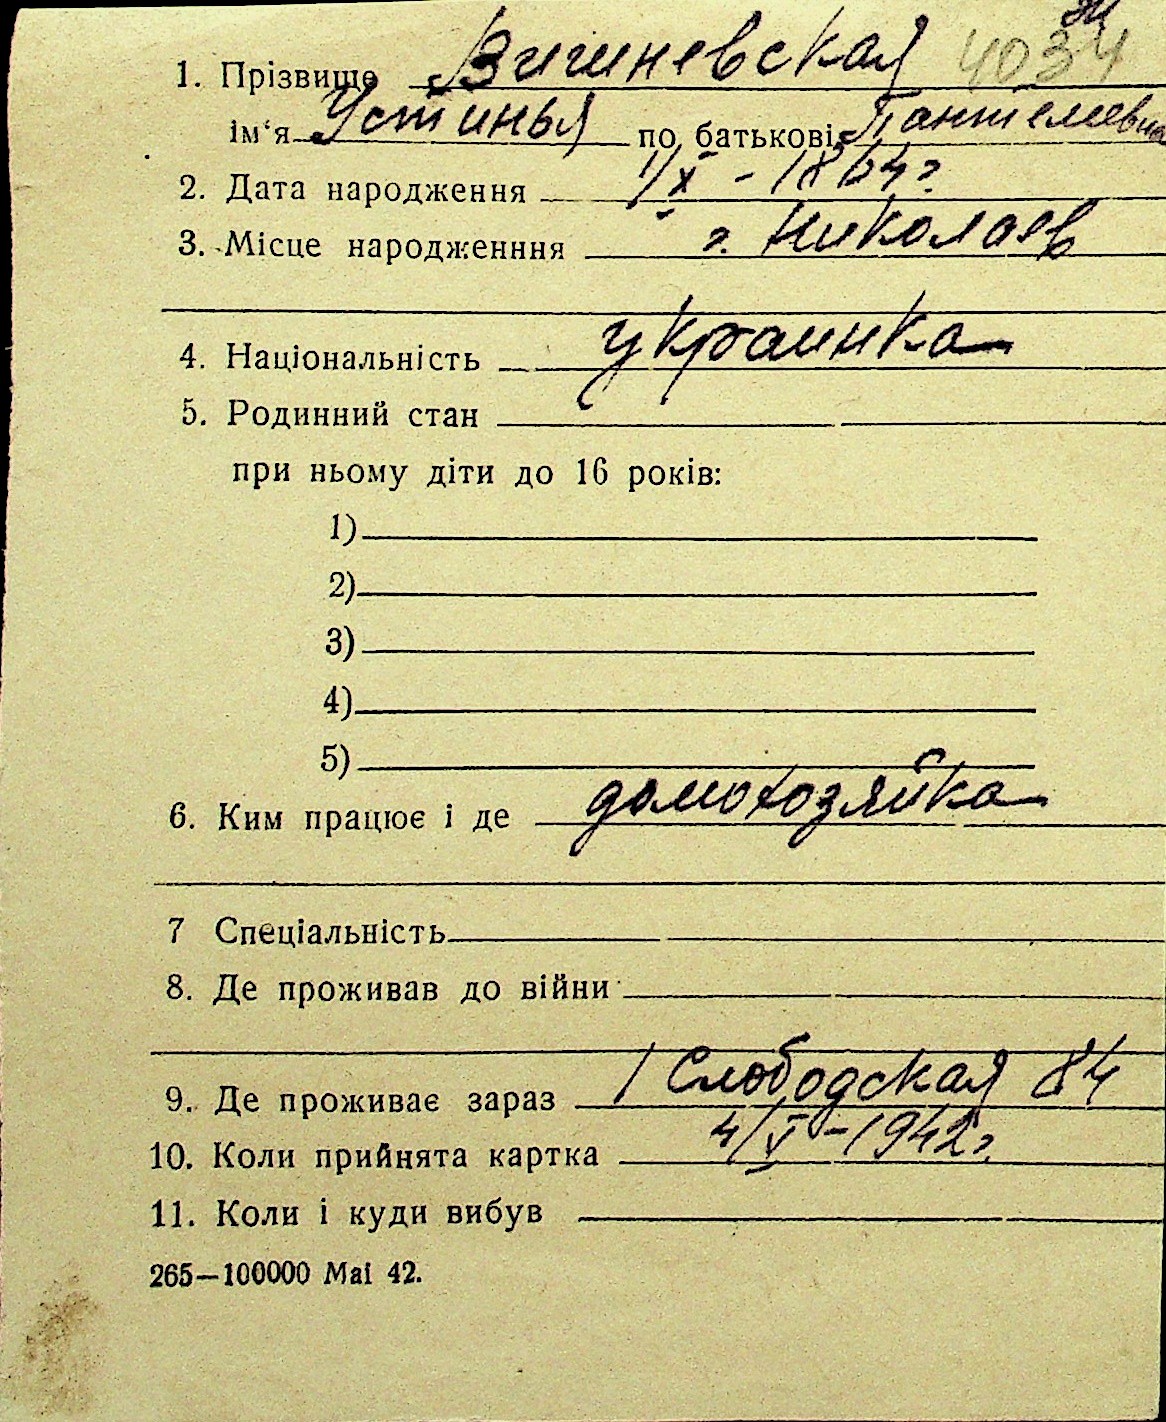 1. Прізвище Вишневская 4034
ім'я Устинья по батькові Пантелеевна
2. Дата народження 1/X - 1864 г.
3. Місце народженння г. Николаев
4. Національність украинка
5. Родинний стан
при ньому діти до 16 років:
1)
2)
3)
4)
5)
6. Ким працює і де домохозяйка
7 Спеціальність
8. Де проживав до війни
9. Де проживає зараз 1 Слободская 84
10. Коли прийнята картка 4/V - 1942 г.
11. Коли і куди вибув
265—100000 Mai 42.